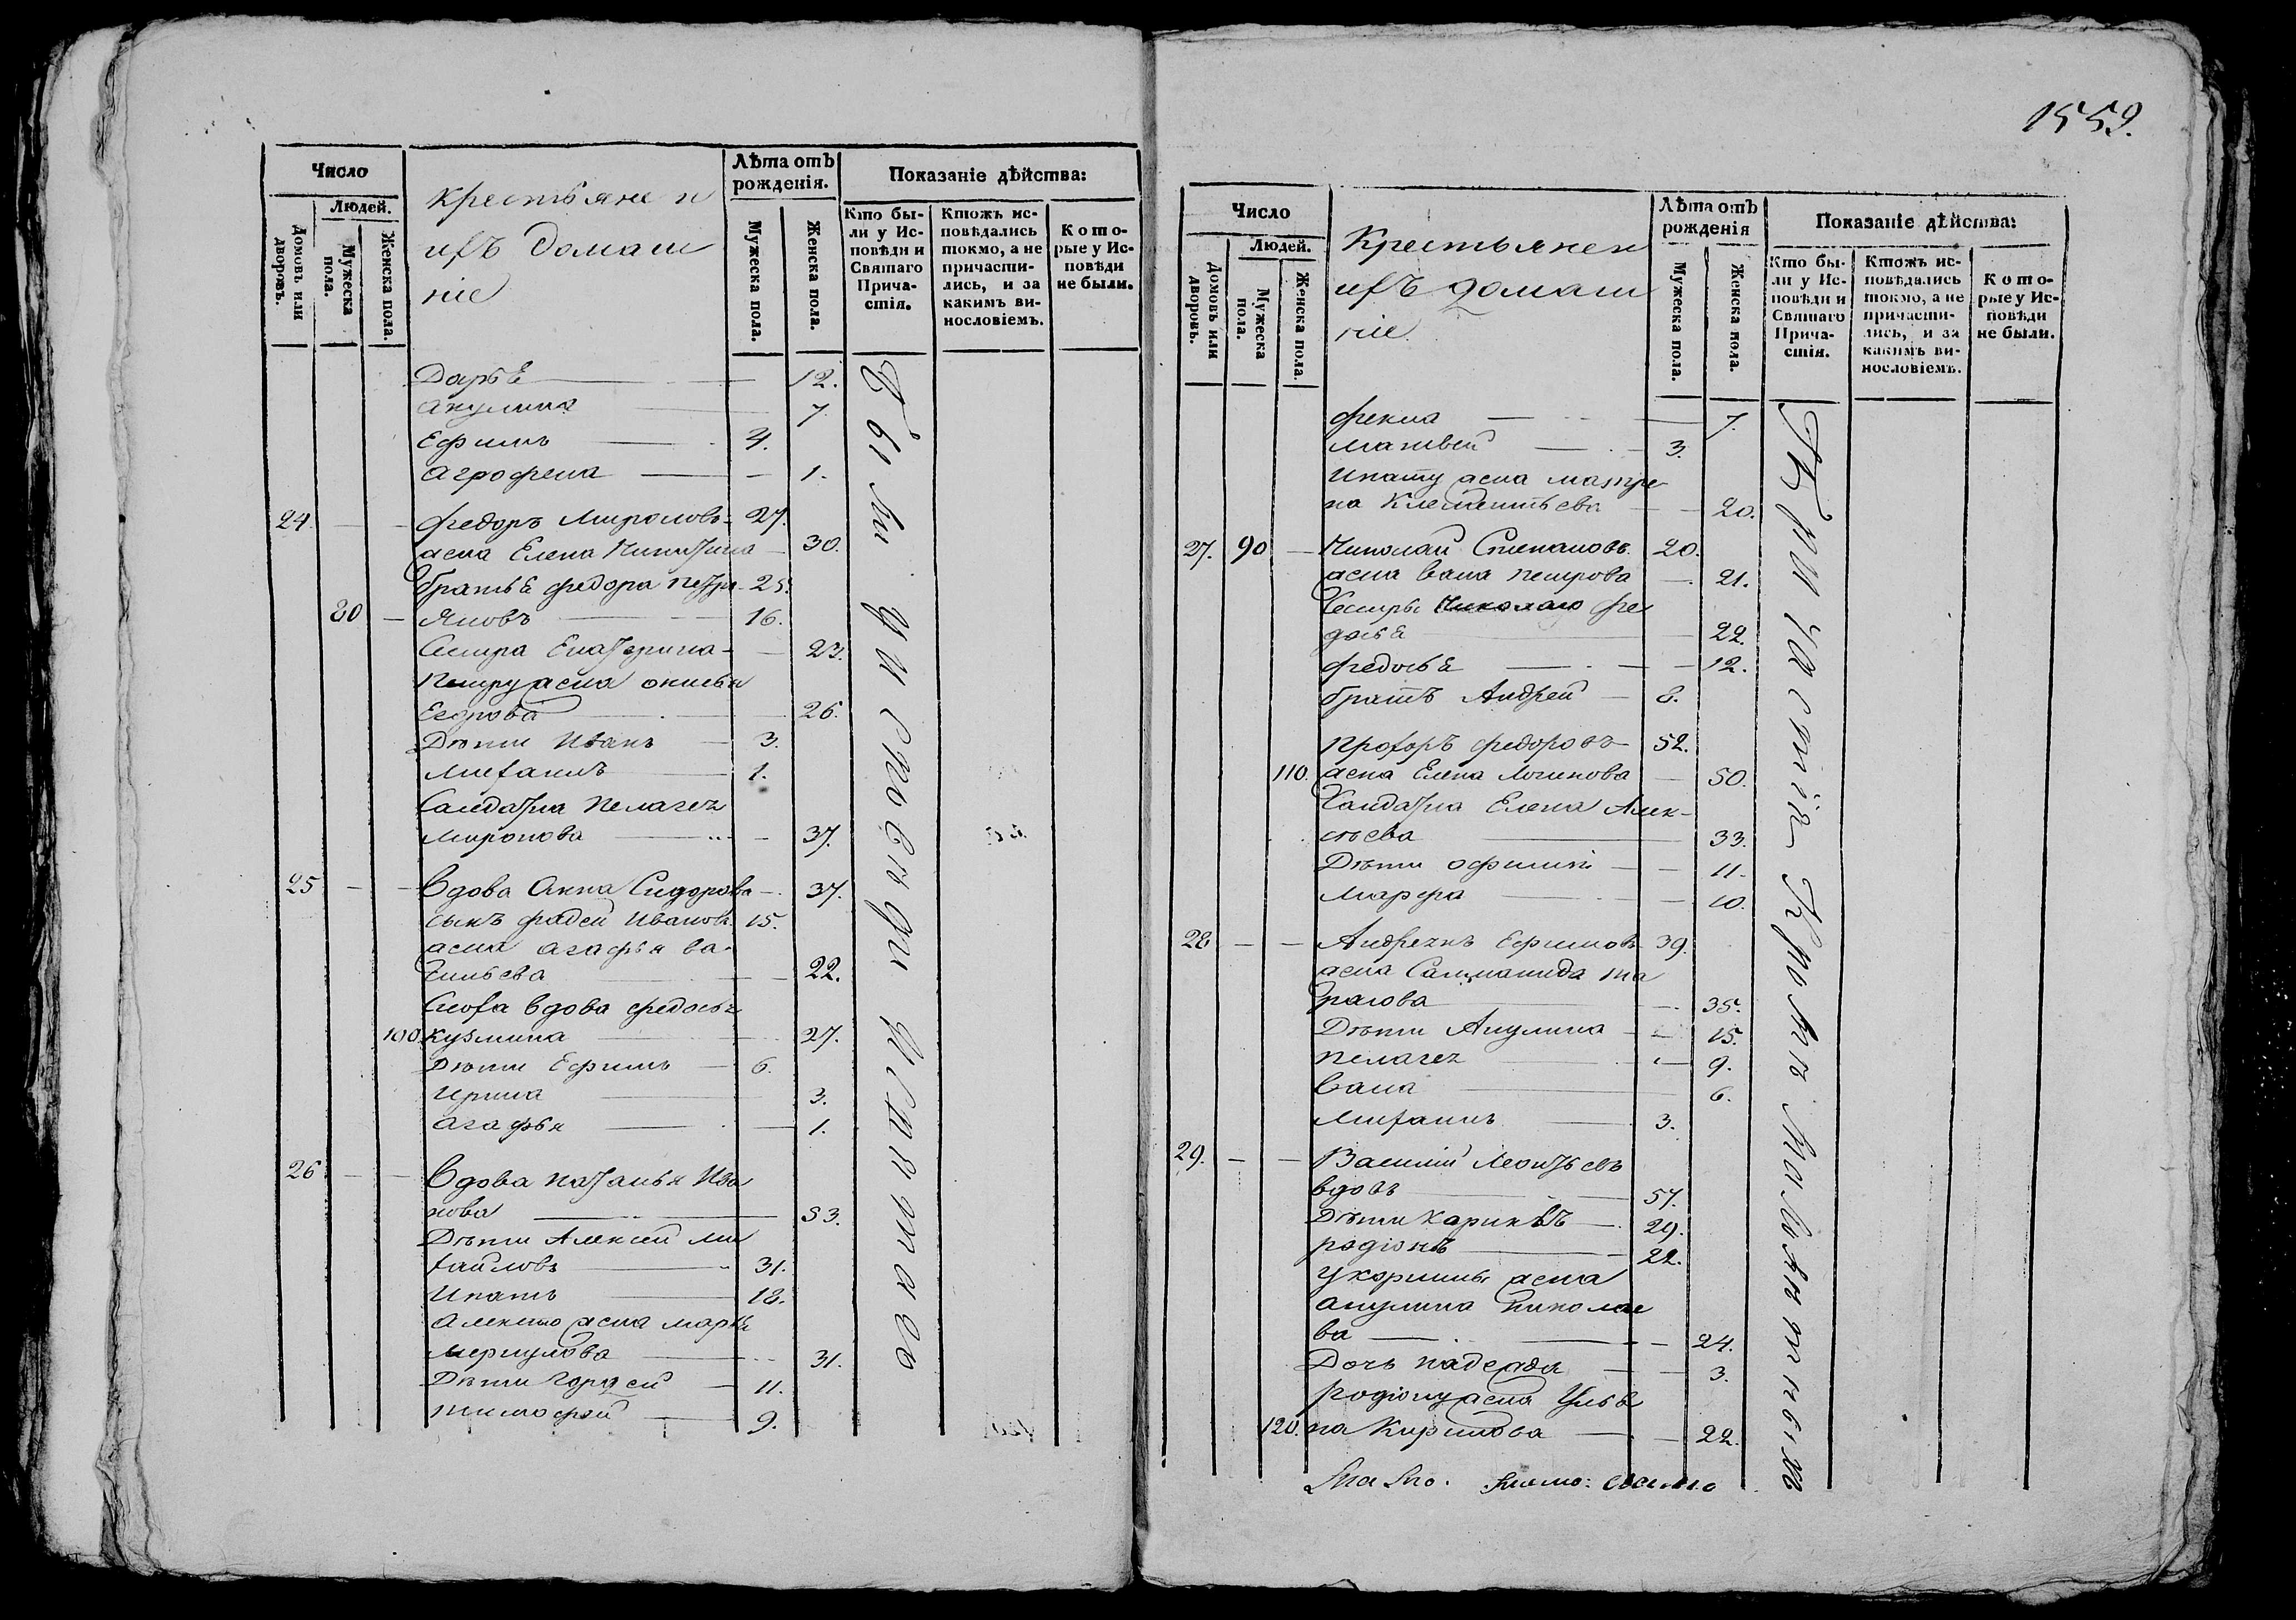 Число
Людей.
Домовъ или дворовъ.
Мужеска пола.
Женска пола.
крестьяне и
ихъ домаш
ніе
Лѣта отъ рожденія.
Мужеска пола.
Женска пола.
Показаніе дѣйства:
Кто бы-
ли у Ис-
повѣди и
Святаго
Прича-
стія.
Ктожъ ис-
повѣдались
токмо, а не
причасти-
лись, и за
какимъ ви-
нословіемъ.
Кото-
рые у Ис-
повѣди
не были.
Дарья 12.
Акулина 7.
Ефимъ 4.
Агрофена 1.
24 Федоръ Мироновъ 27.
жена Елена Никитина 30.
братья Федора Петръ 25.
80 Яковъ 16.
Сестра Екатерина 23.
Петру жена
Егорова 26.
Дѣти Иванъ 3.
Михаилъ 1.
Салдатка Пелагея
Миронова 37.
25 Вдова Анна Сидорова 37.
сынъ Фадей Ивановъ 15.
жена Агафья Ва-
сильева 22.
Сноха вдова Федосья
100 Кузмина 27.
Дѣти Ефимъ 6.
Ирина 3.
Агафья 1.
26 Вдова Наталья Ива
нова 53.
Дѣти Алексей Ми
хайловъ 31.
Ипатъ 18.
Алексею жена Марья
Меркулова 31.
Дѣти Гордей 11.
Тимофей 9.
1559.
Число
Людей.
Домовъ или дворовъ.
Мужеска пола.
Женска пола.
Крестьяне и
ихъ домаш
ніе.
Лѣта отъ рожденія
Мужеска пола.
Женска пола.
Показаніе дѣйства:
Кто бы-
ли у Ис-
повѣди и
Святаго
Прича-
стія.
Ктожъ ис-
повѣдались
токмо, а не
причасти-
лись, и за
какимъ ви-
нословіемъ.
Кото-
рые у Ис-
повѣди
не были.
Фекла 7.
Матвей 3.
Ипату жена Матре
на Клементьева 20.
27. 90 Николай Степановъ 20.
жена Васа Петрова 21.
Сестры Николаю Фе
досья 22.
Федосья 12.
братъ Андрей 8.
Прохоръ Федоровъ 52.
110. жена Елена Логинова 50.
Салдатка Елена Алек-
сѣева 33.
Дѣти 11.
Марфа 10.
28 Андреянъ Ефимовъ 39.
жена Саламанида Та
расова 35.
Дѣти Акулина 15.
Пелагея 9.
Васа 6.
Михаилъ 3.
29. Василий Леонтьевъ
вдовъ 57.
Дѣти 29.
Родіонъ 22.
жена
Акулина Николае
ва 24.
Дочь Надежда 3.
Родіону жена Улья
120. на Кирилова 22.